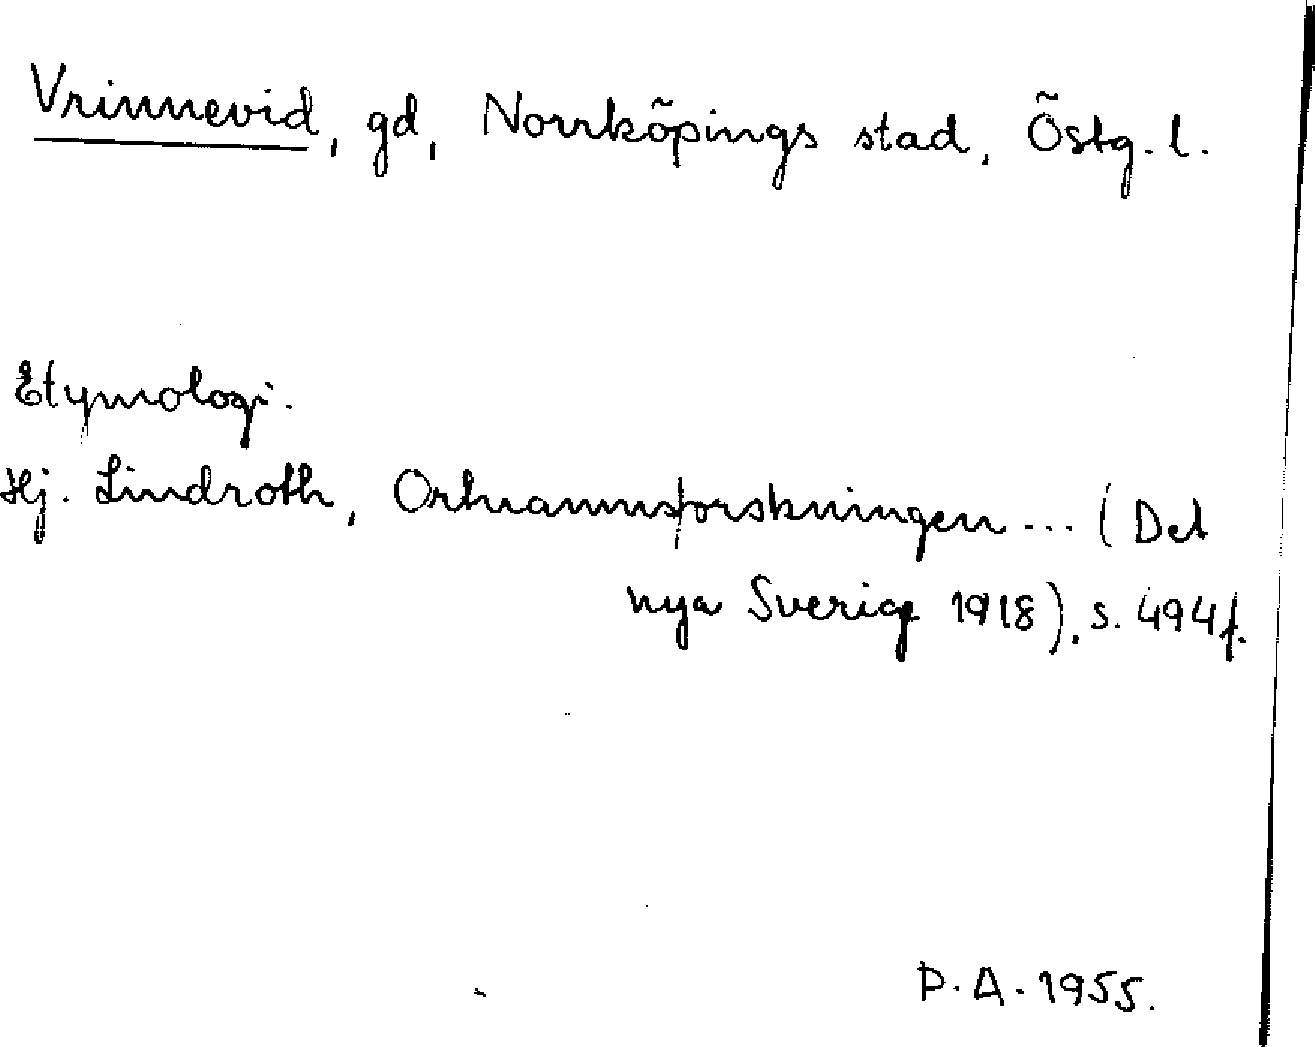 Vrinnevid, gd, Norrköpings stad, Östg. l.
Etymologi.
Hj. Lindroth, Ortnamnsforskningen ... (Det
nya Sverige 1918), s. 494f.
P. A. 1955.